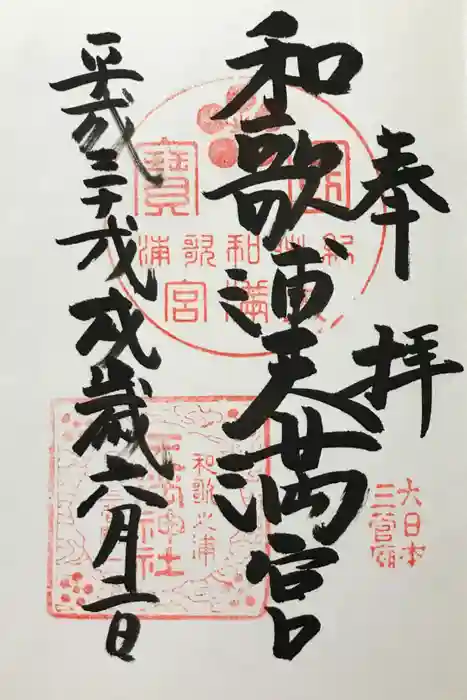 奉拝
大日本
三菅廟
和歌浦天満宮
紀州和歌浦
和歌之浦
天満神社
平成三十戊戌歳六月十二日